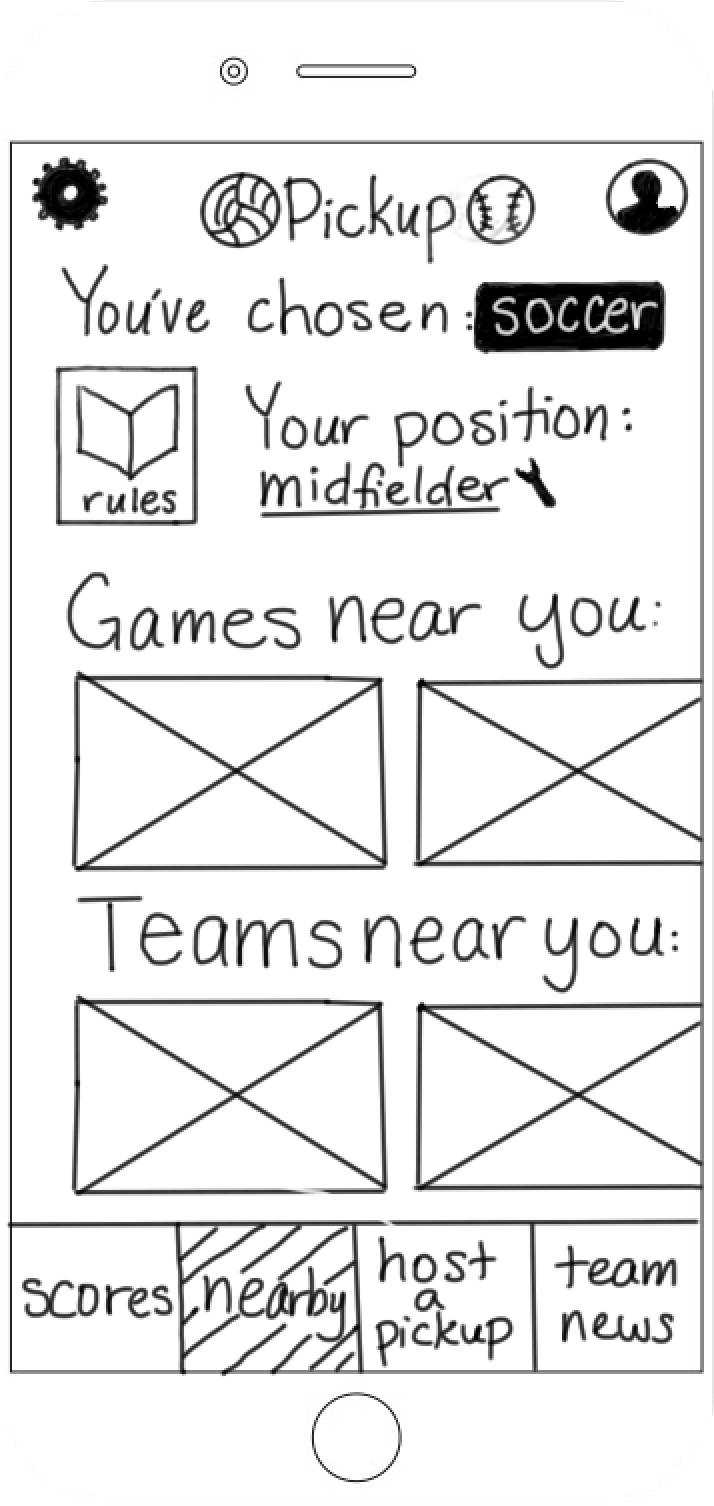 Pickup
You've chosen: soccer
rules
Your position:
midfielder
Games near you:
Teams near you:
scores
nearby
host
a
pickup
team
news